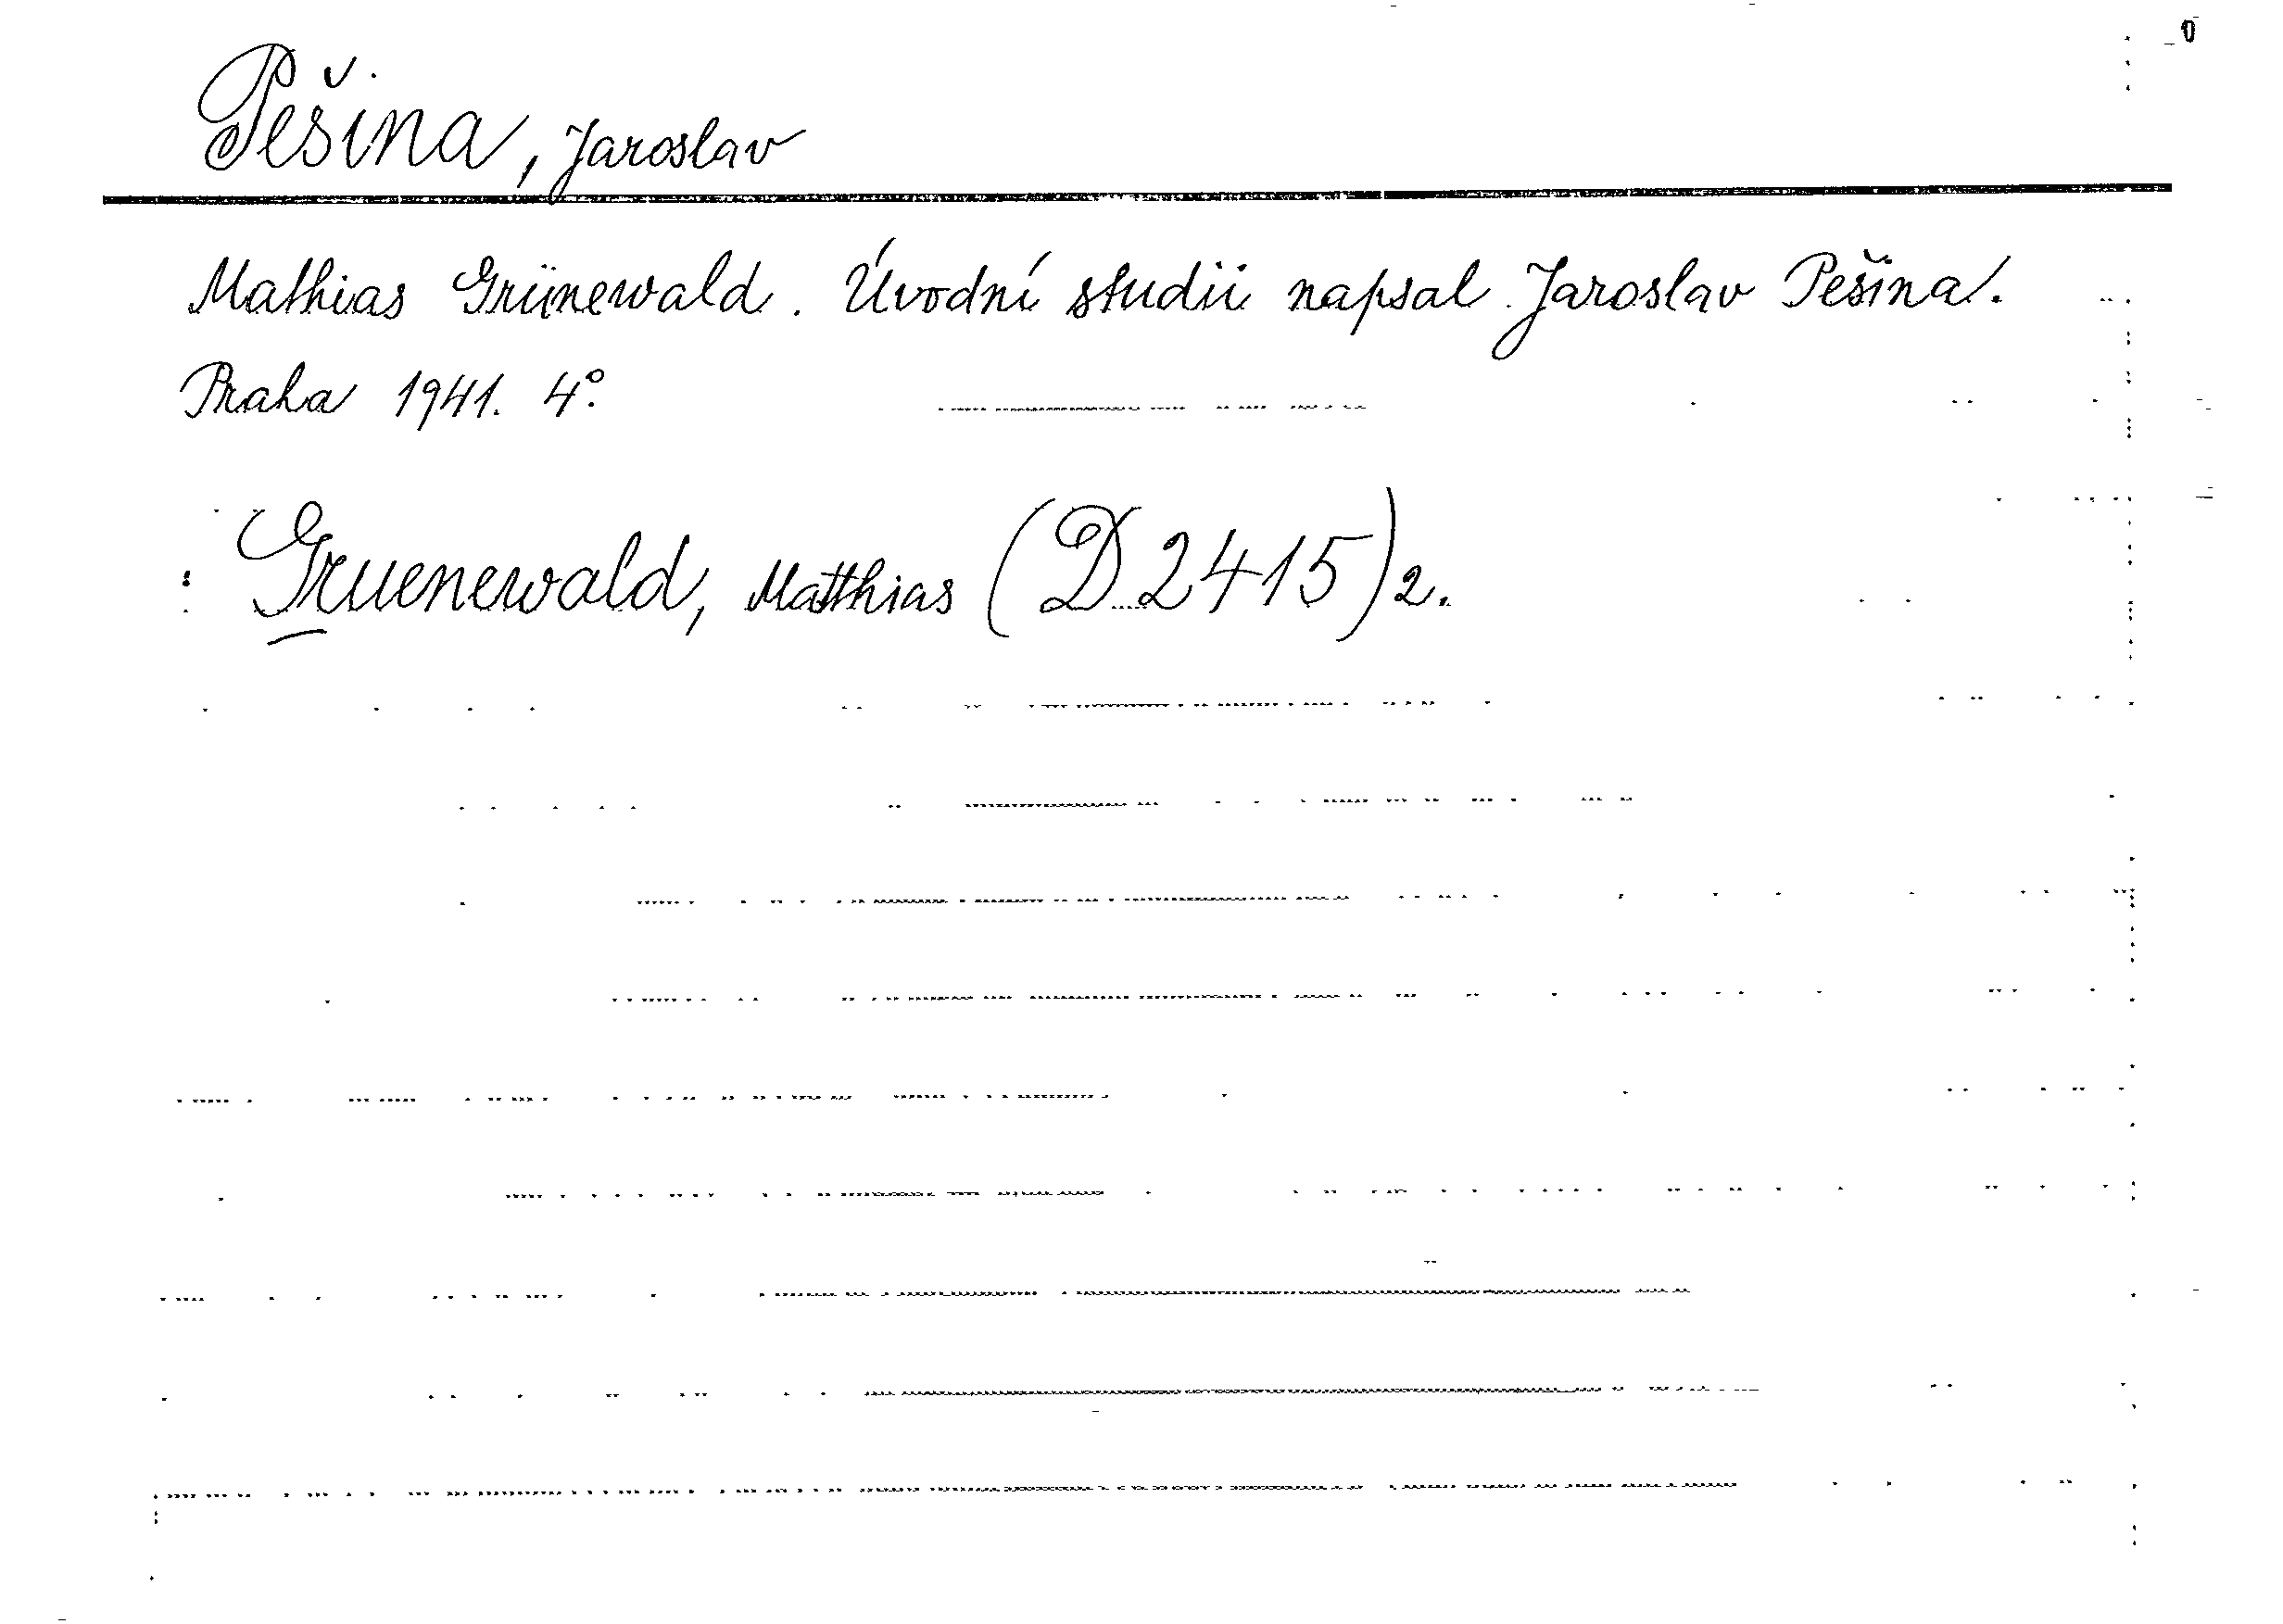 Pešina, Jaroslav
Mathias Grünewald. Úvodní studii napsal Jaroslav Pešina.
Praha 1941. 4°.
Gruenewald, Matthias (D 2415) 2.